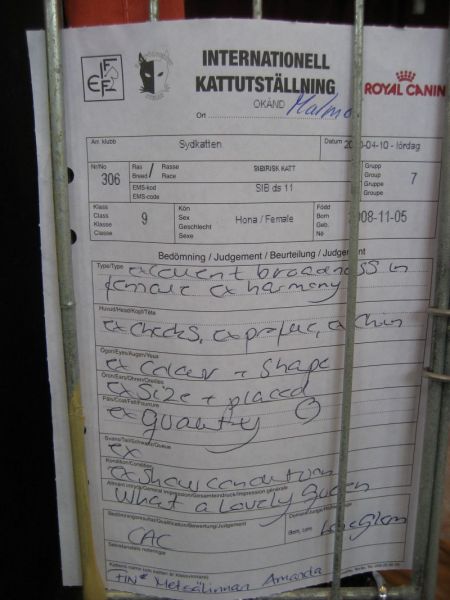 FIFe
INTERNATIONELL
KATTUTSTÄLLNING
ROYAL CANIN
OKÄND
Ort Malmö
Arr. klubb Sydkatten Datum 0-04-10 - lördag
Nr/No 306 Ras/Rasse Breed/Race SIBIRISK KATT Grupp Group Gruppe Groupe 7
EMS-kod EMS-code SIB ds 11
Klass Class Klasse Classe 9 Kön Sex Geschlecht Sexe Hona / Female Född Born Geb. Né 008-11-05
Bedömning / Judgement / Beurteilung / Judgement
Type/Type excellent broadness in
female ex harmony
Huvud/Head/Kopf/Tête
ex cheeks, ex profile, ex chin
Ögon/Eyes/Augen/Yeux
ex colour + shape
Öron/Ears/Ohren/Oreilles
ex size + placed
Päls/Coat/Fell/Fourrure
ex quality
Svans/Tail/Schwanz/Queue
ex
Kondition/Condition
ex show condition
Allmänt intryck/General impression/Gesamteindruck/Impression générale
What a lovely queen
Bedömningsresultat/Qualification/Bewertung/Judgement
CAC
Sekretariatets noteringar
Kattens namn
FIN* Metsälinnan Amanda